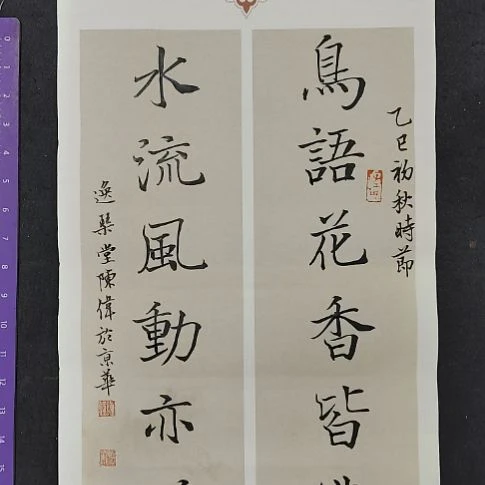 乙巳初秋時節
鳥語花香皆
水流風動亦
逸槩堂陳偉於京華
0
1
2
3
4
5
6
7
8
9
10
11
12
13
14
15